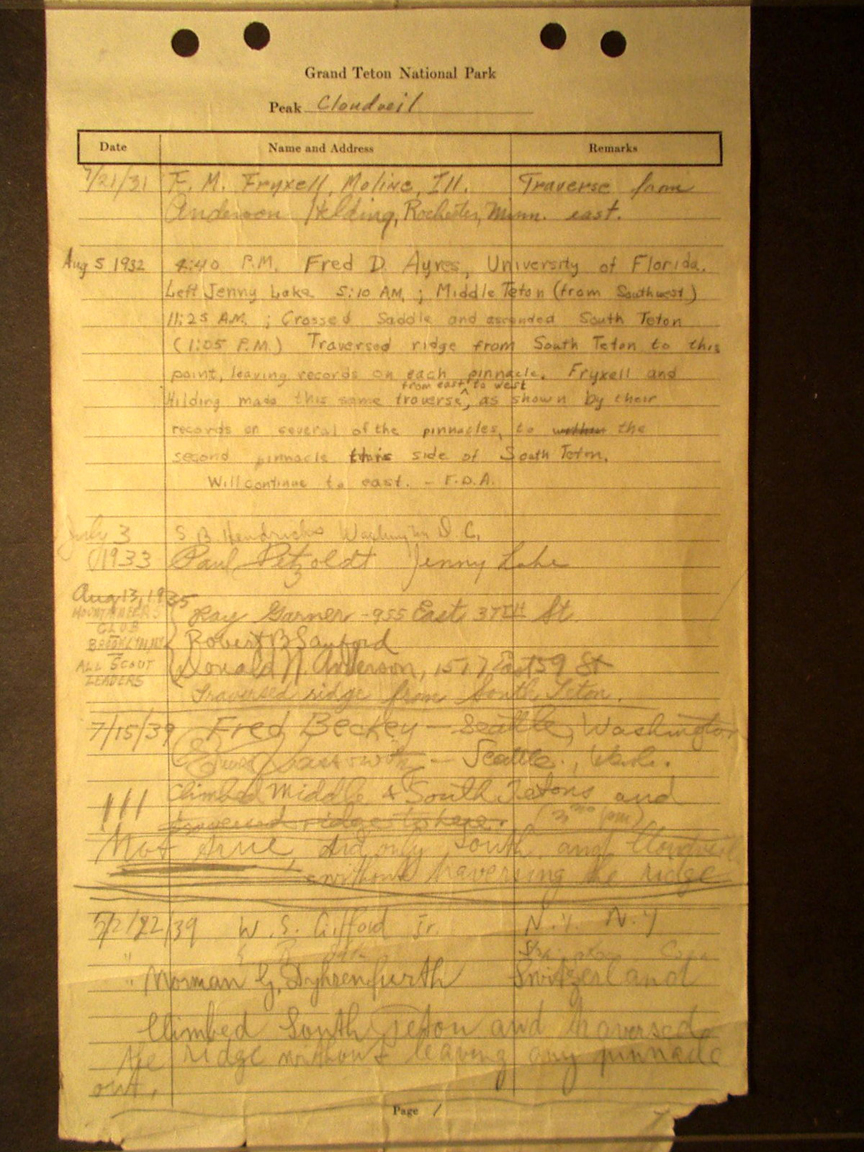 Grand Teton National Park
Peak Cloudveil
Date Name and Address Remarks
7/21/31 F. M. Fryxell, Moline, Ill. Traverse from
Anderson Hilding, Rochester, Minn. east.
Aug 5 1932 4:40 P.M. Fred D. Ayres, University of Florida.
Left Jenny Lake 5:10 AM ; Middle Teton (from Southwest)
11:25 A.M. ; Crossed Saddle and ascended South Teton
(1:05 P.M.) Traversed ridge from South Teton to this
point, leaving records on each pinnacle. Fryxell and
from east to west
Hilding made this same traverse, as shown by their
records on several of the pinnacles, to the
second pinnacle this side of South Teton.
Will continue to east. - F.D.A.
July 3 S B Hendricks Washington D.C.
1933 Paul Petzoldt Jenny Lake
Aug 13, 1935
MOUNTAINEERS Ray Garner - 955 East 37TH St.
CLUB
BROOKLYN NY Robert B Sanford
ALL SCOUT Donald N Anderson, 1517 East 59 St
LEADERS
Traversed ridge from South Teton.
7/15/39 Fred Beckey - Seattle, Washington
- Seattle, Wash.
Climbed Middle & South Tetons and
!!! traversed ridge to here. (3 30 pm)
Not true did only South and Cloudveil
without traversing the ridge
22/39 W. S. Gifford Jr. N.Y. N.Y
" Norman G. Dyhrenfurth Switzerland
Climbed South Teton and traversed
the ridge without leaving any pinnacle
out.
Page 1